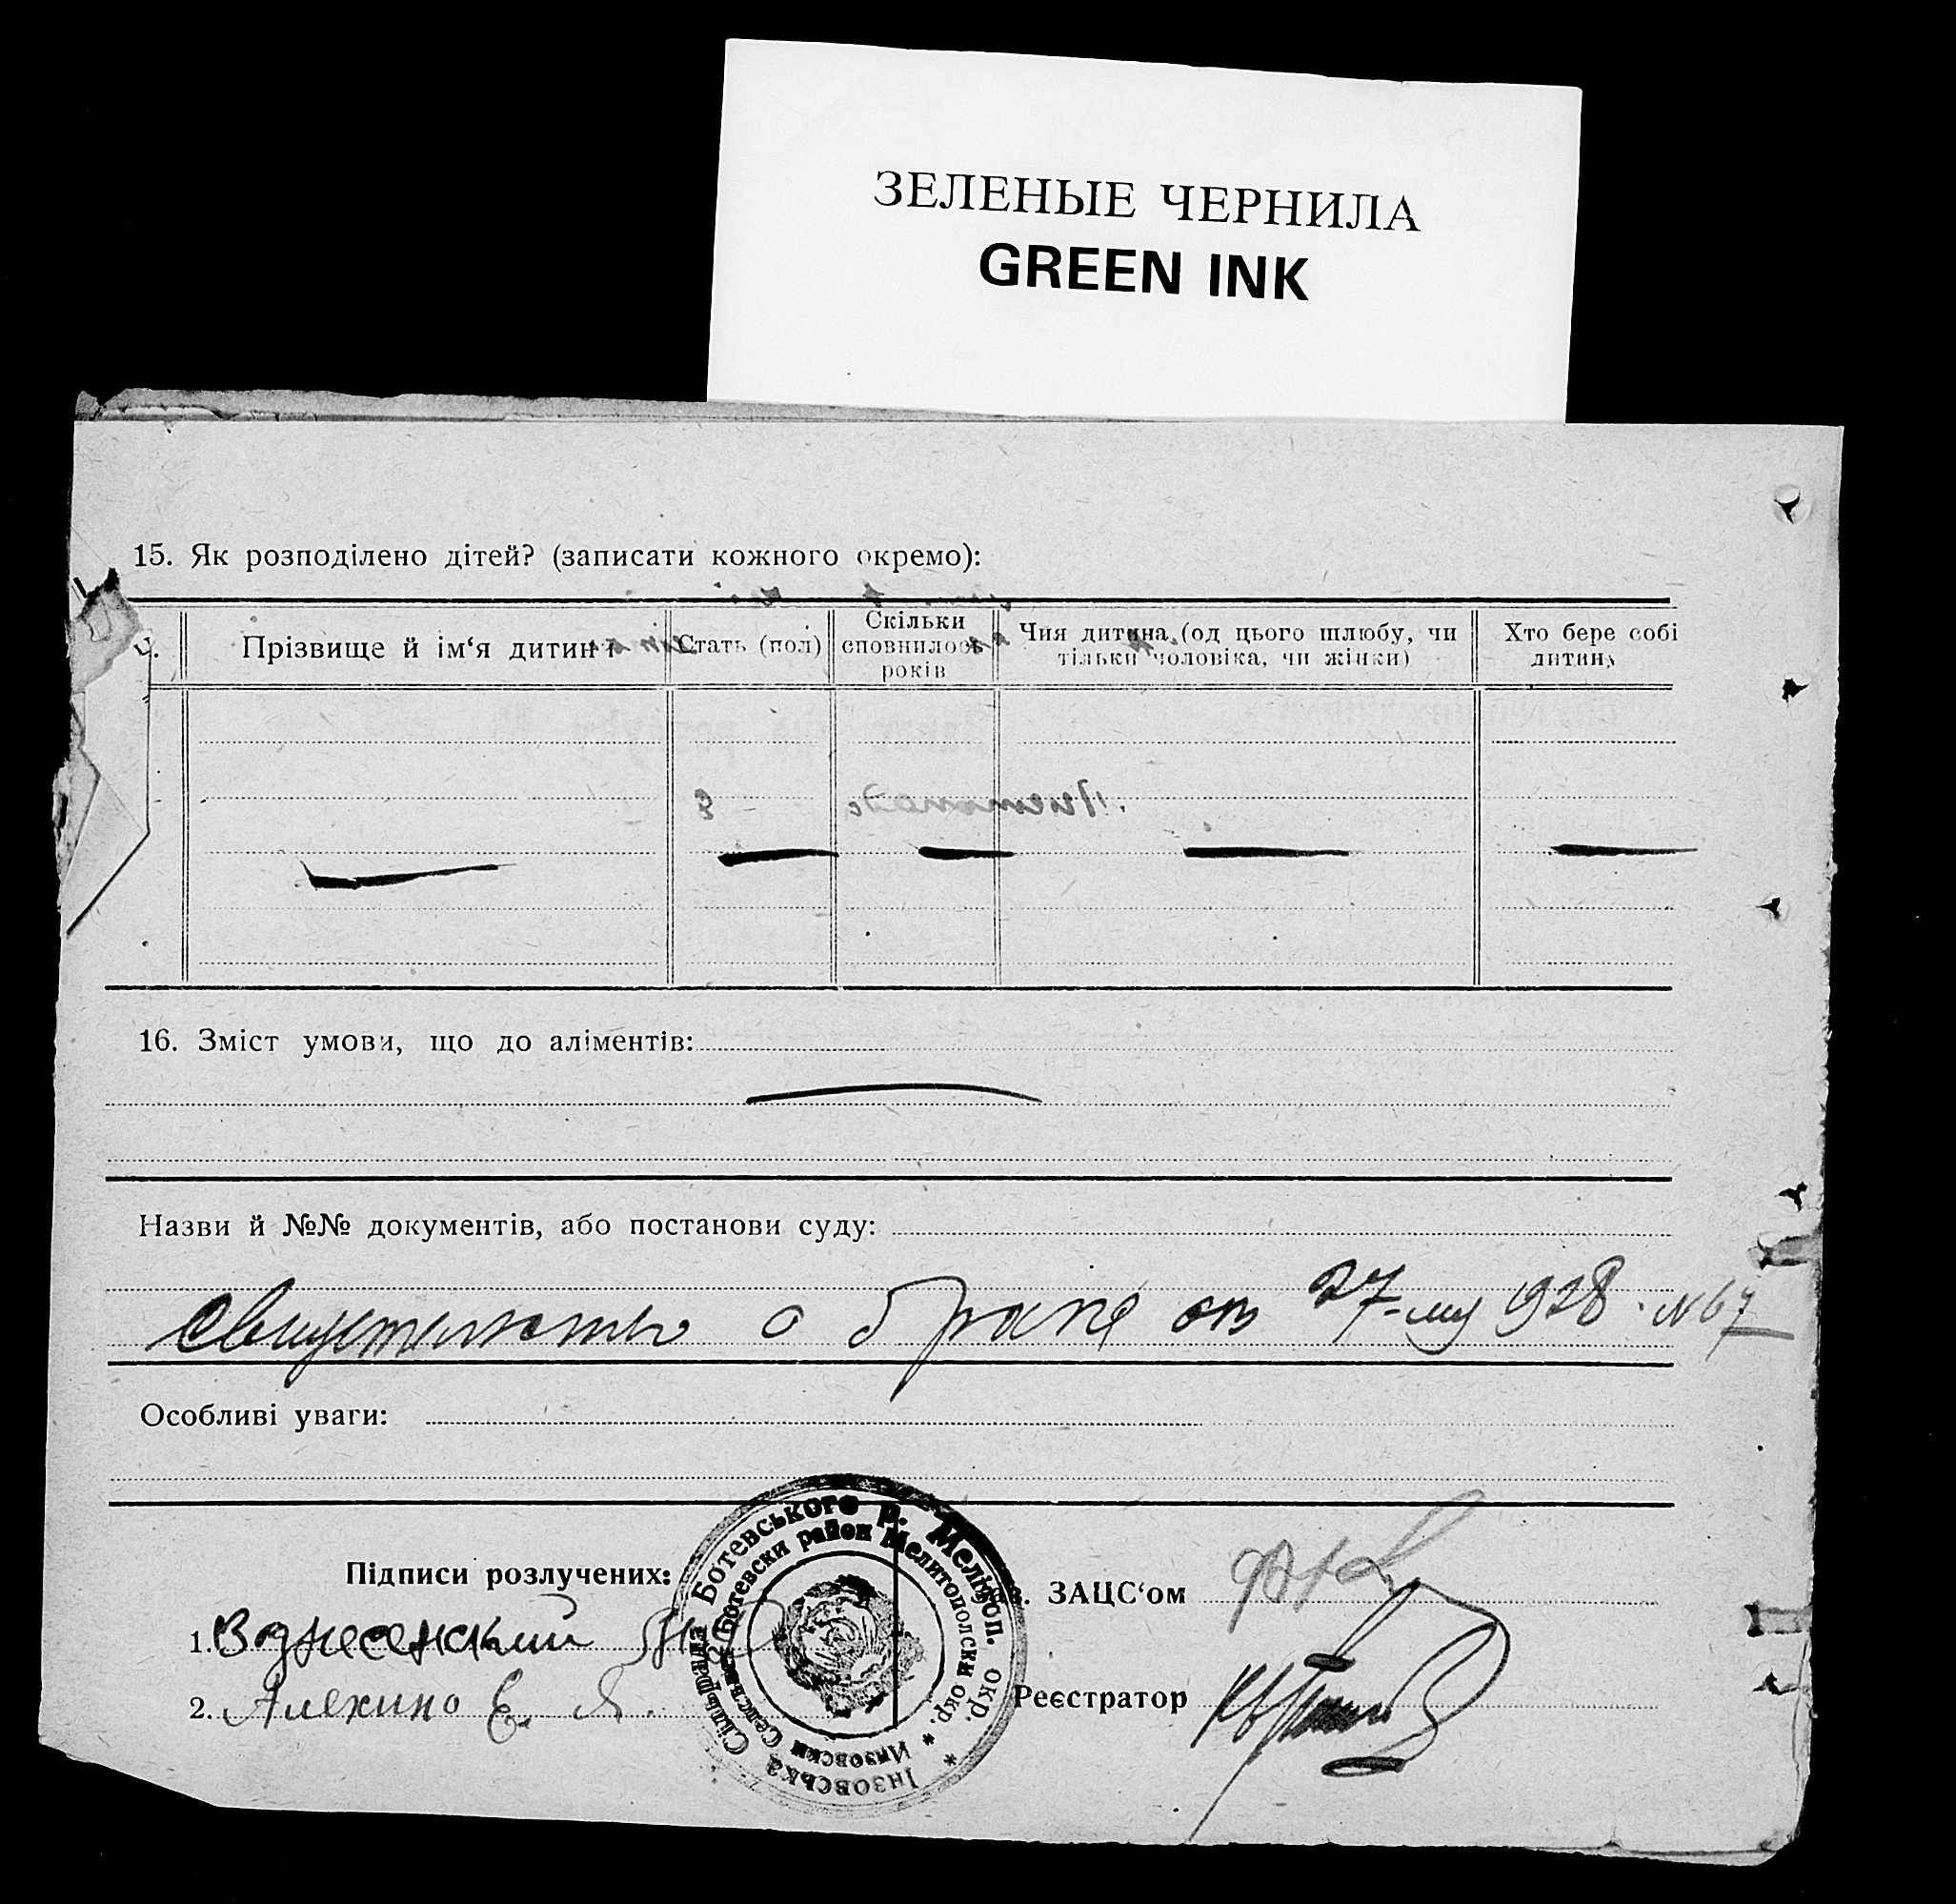 ЗЕЛЕНЫЕ ЧЕРНИЛА
GREEN INK
15. Як розподілено дітей? (записати кожного окремо):
Прізвище й ім‘я дитини
Стать (пол)
Скільки
сповнилось
років
Чия дитина (од цього шлюбу, чи
тільки чоловіка, чи жінки)
Хто бере собі
дитину
16. Зміст умови, що до аліментів:
Назви й №№ документів, або постанови суду:
свидетельство о браке от 27- 1928. N 67
Особливі уваги:
Підписи розлучених:
ЗАЦС‘ом
1.
2. Алехино Е. Я.
Реєстратор
Інзовська Сільрада Ботевського р. Меліт. окр. *
Инзовски Селсъвет Ботевски район Мелитополски окр. *